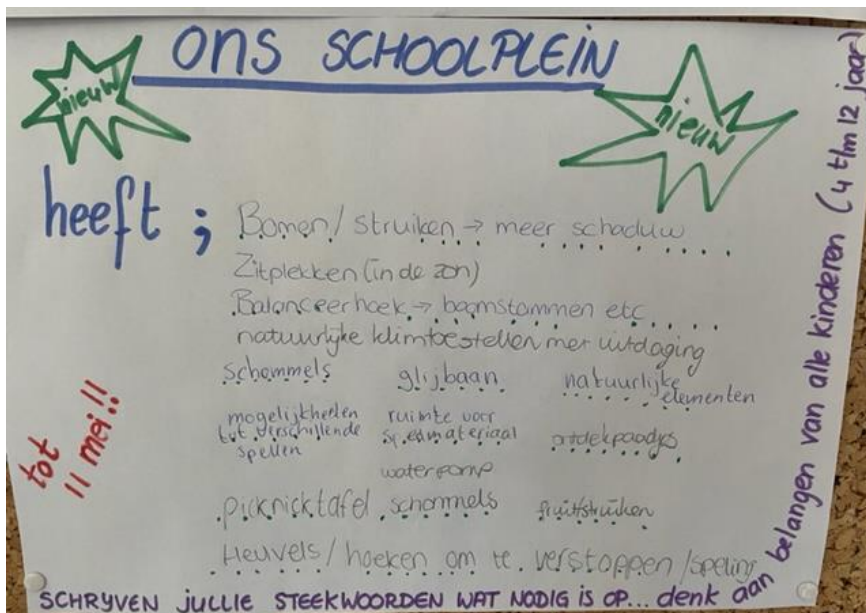 ONS SCHOOLPLEIN
nieuw
nieuw
heeft ;
Bomen / struiken → meer schaduw
Zitplekken (in de zon)
Balanceerhoek → boomstammen etc
natuurlijke klimtoestellen met uitdaging
schommels glijbaan natuurlijke elementen
mogelijkheden tot verschillende spellen
ruimte voor spelmateriaal
ontdekpaadjes
waterpomp
picknicktafel schommels fruitstruiken
Heuvels / hoeken om te verstoppen / speling
tot 11 mei!!
SCHRYVEN JULLIE STEEKWOORDEN WAT NODIG IS OP... denk aan belangen van alle kinderen (4 t/m 12 jaar)